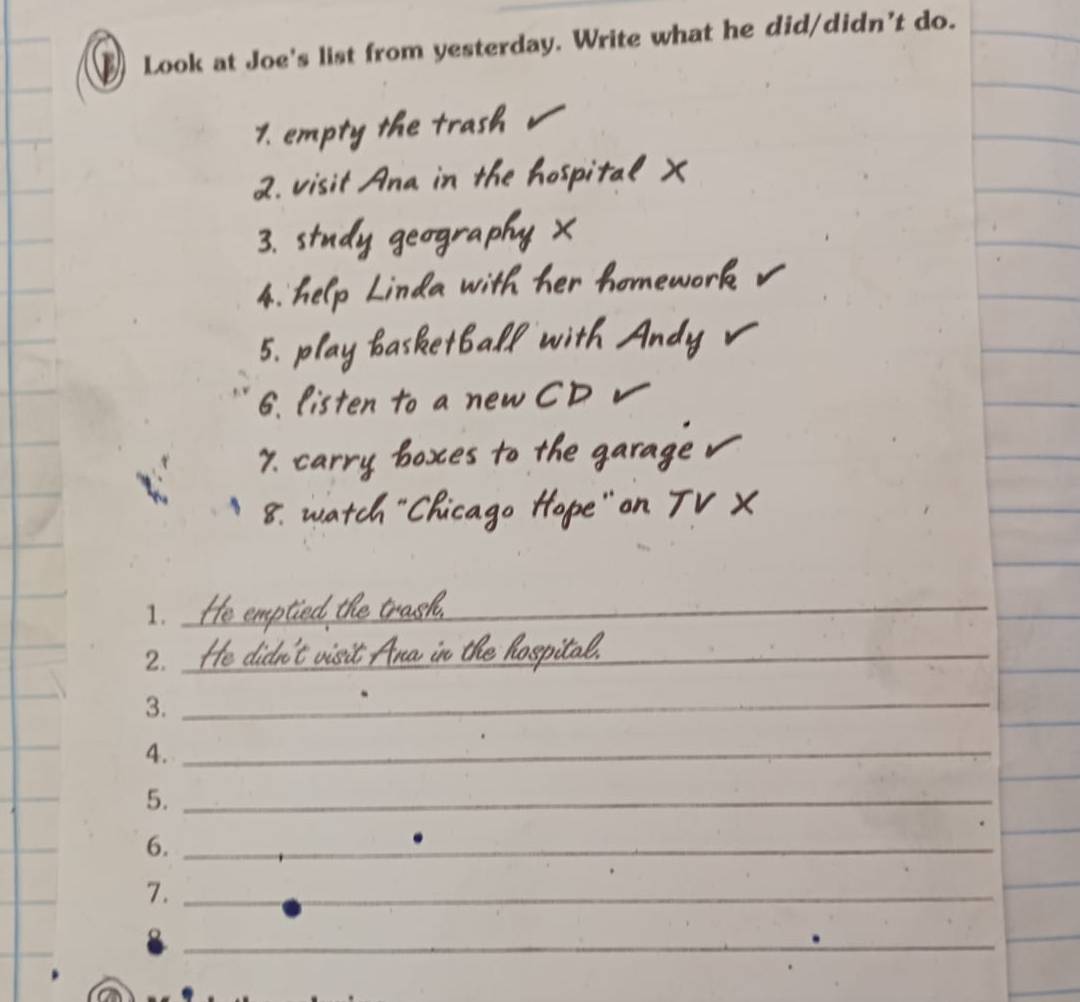 Look at Joe's list from yesterday. Write what he did/didn't do.
1. empty the trash ✓
2. visit Ana in the hospital X
3. study geography X
4. help Linda with her homework ✓
5. play basketball with Andy ✓
6. listen to a new CD ✓
7. carry boxes to the garage ✓
8. watch "Chicago Hope" on TV X
1. He emptied the trash.
2. He didn't visit Ana in the hospital.
3.
4.
5.
6.
7.
8